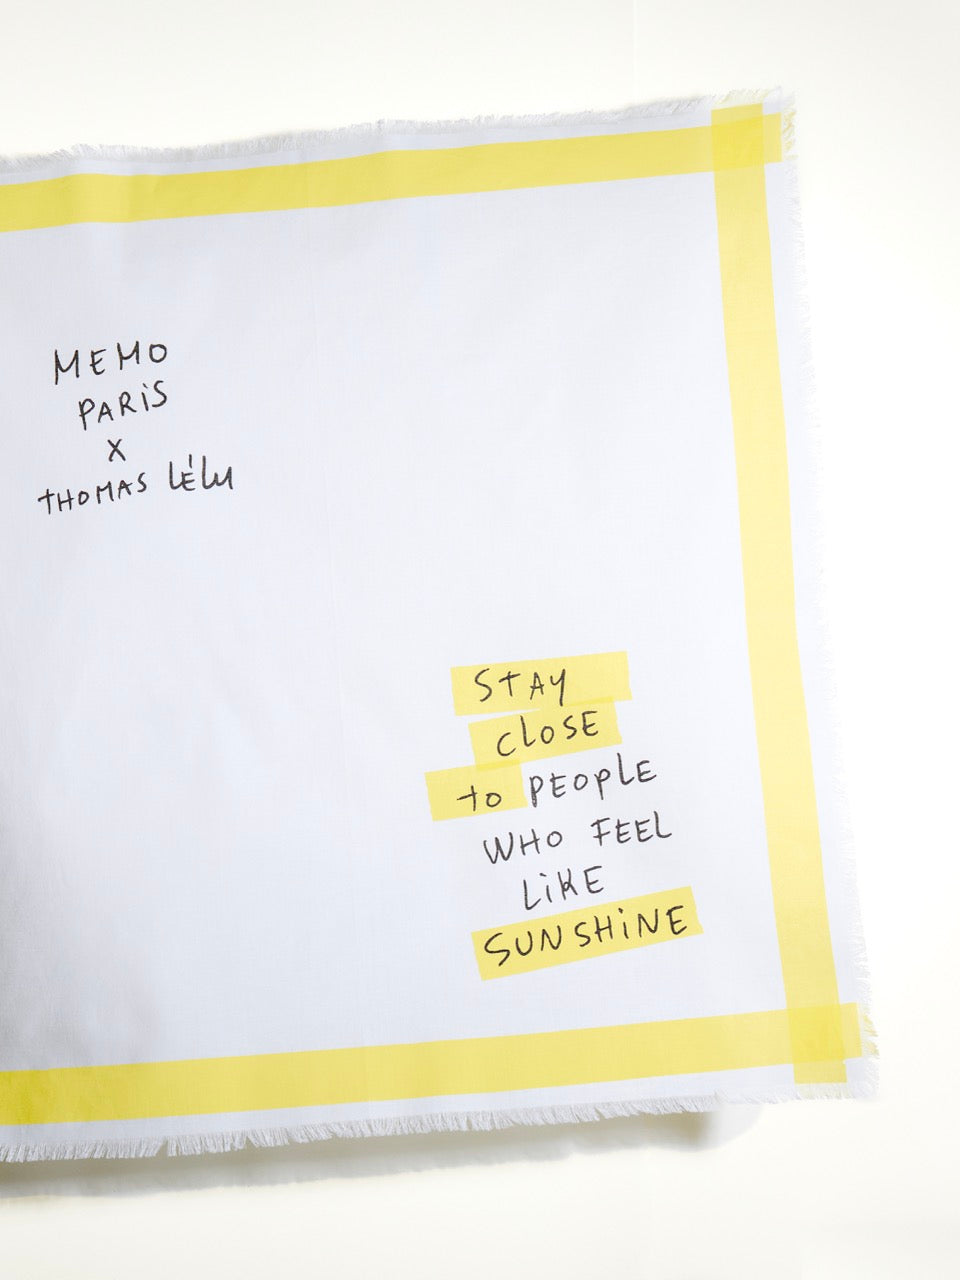 MEMO
PARiS
X
THOMAS LÉLU
STAY
CLOSE
to PEOPLE
WHO FEEL
LiKE
SUNSHiNE